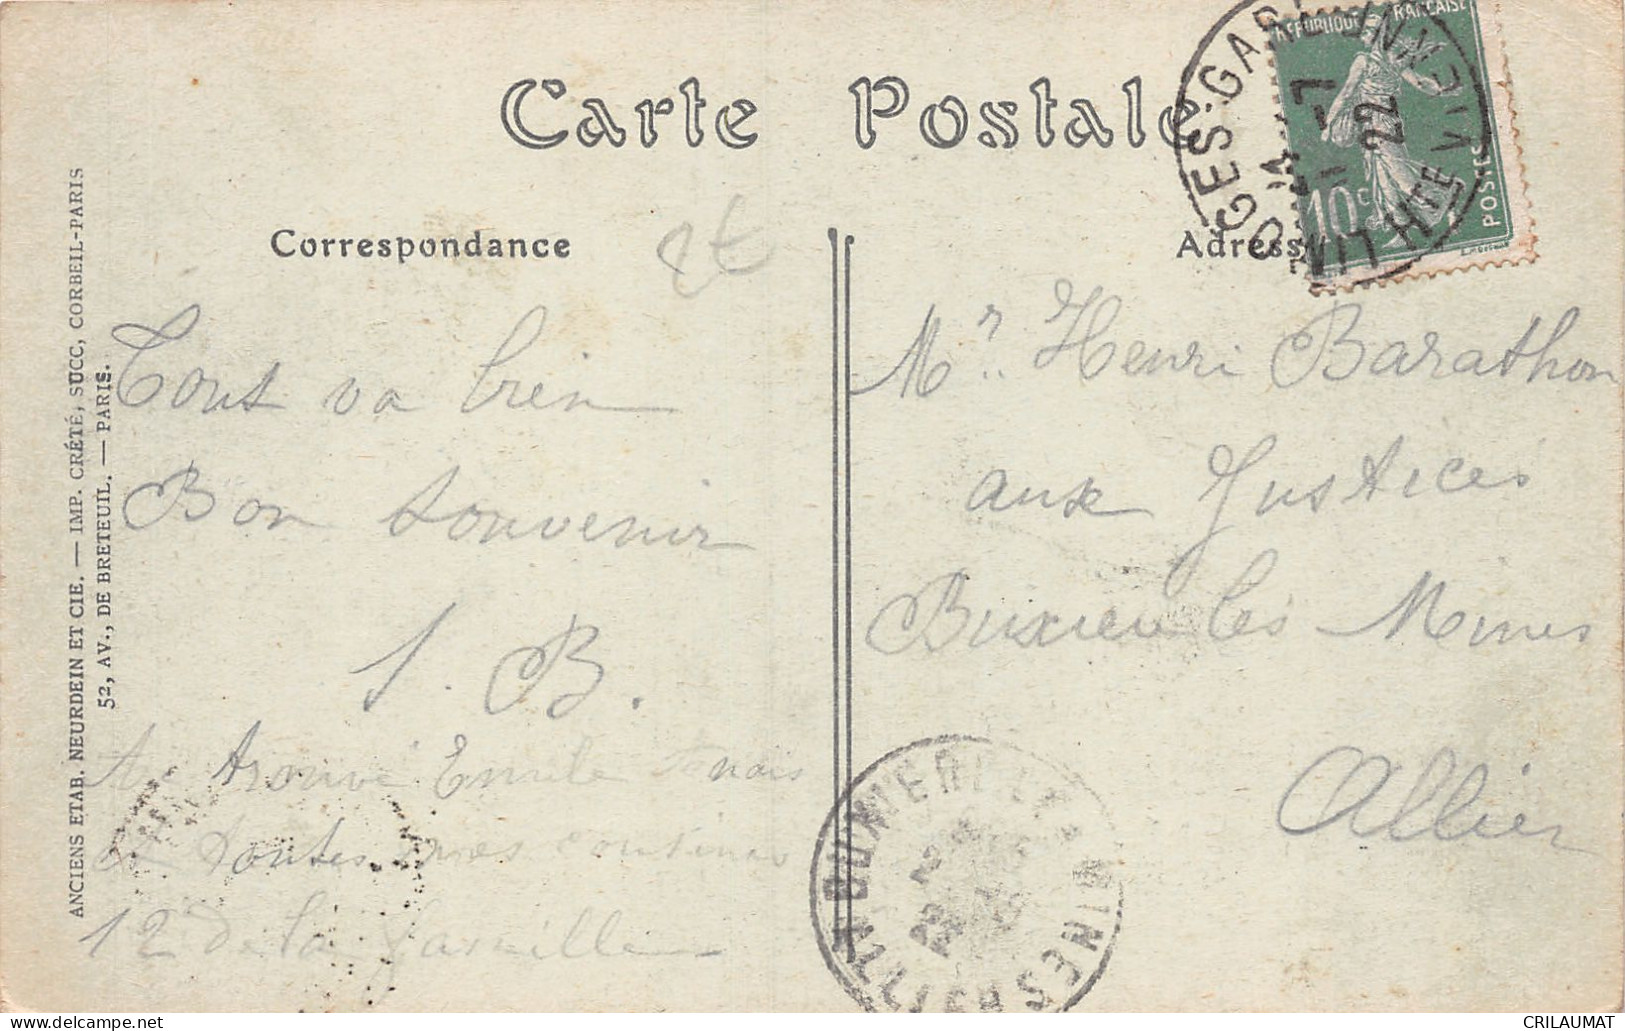 Carte Postale
Correspondance
Adresse
ANCIENS ETAB. NEURDEIN ET CIE. — IMP. CRÉTÉ, SUCC, CORBEIL-PARIS
52, AV., DE BRETEUIL. — PARIS.
REPUBLIQUE FRANÇAISE
10c
POSTES
LIMOGES-GARE
HTE VIENNE
11-7
22
2€
Tout va bien
Bon souvenir
J. B.
Ai trouvé Emile
et toutes mes cousines
12 de la famille
Mr. Henri Barathon
aux Justices
Buxieres les Mines
Allier
BUXIERES LES MINES
ALLIER
CRILAUMAT